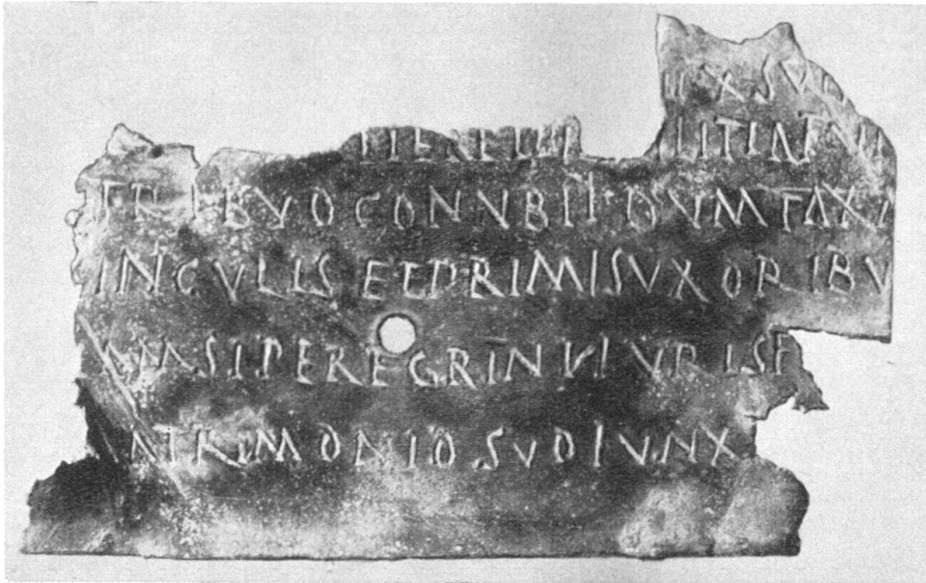 ITER ET PIE ILITIA FVN
TRIBVO CONVBII · DVMTAXA
INGVLIS ET PRIMIS VXORIBV
IAM SI PEREGRINI IVRIS F
ATRIMONIO SVO IVNX